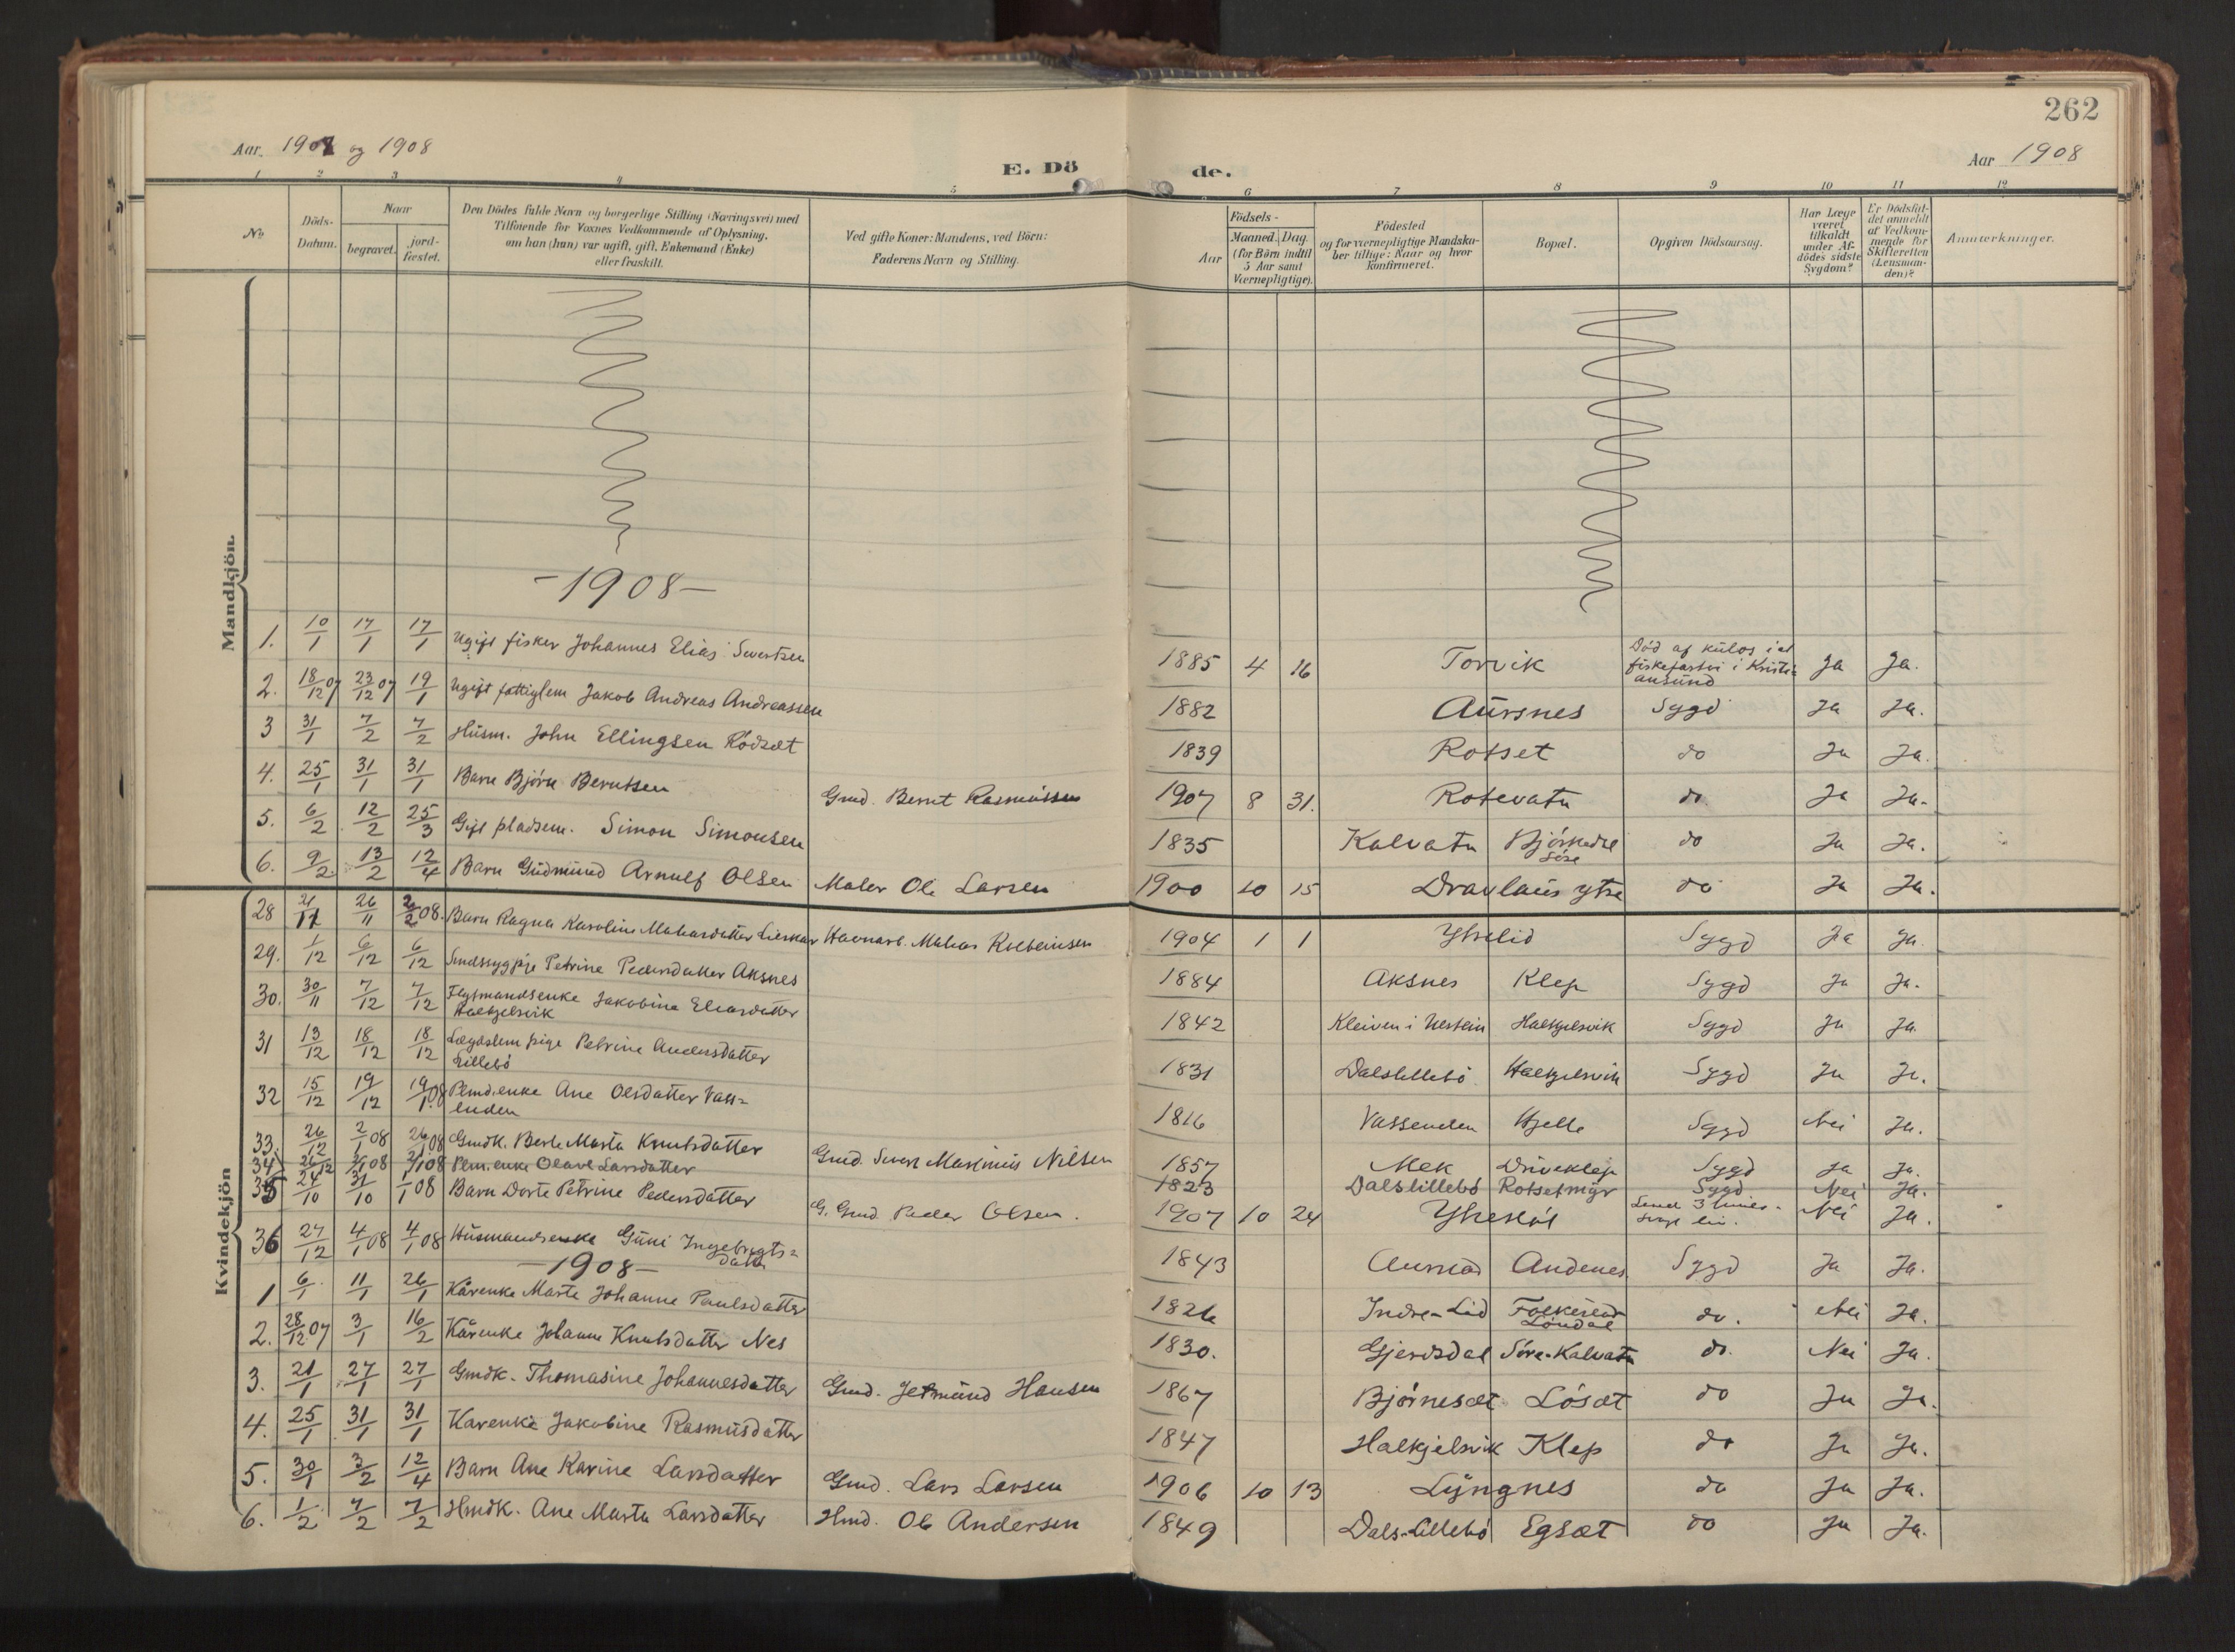 262
Aar. 1907 og 1908
E. Dö
de.
Aar 1908
1 2 3 4 5 6 7 8 9 10 11 12
No
Döds-
Datum.
Naar
begravet.
jord-
fæstet.
Den Dödes fulde Navn og borgerlige Stilling (Næringsvei) med
Tilföiende for Voxnes Vedkommende af Oplysning,
om han (hun) var ugift, gift, Enkemand (Enke)
eller fraskilt.
Ved gifte Koner: Mandens, ved Börn:
Faderens Navn og Stilling.
Aar
Födsels-
Maaned. Dag.
(for Börn indtil
5 Aar samt
Værnepligtige).
Födested
og for værnepligtige Mandska-
ber tillige: Naar og hvor
konfirmeret.
Bopæl.
Opgiven Dödsaarsag.
Har Læge
været
tilkaldt
under Af-
dödes sidste
Sygdom?
Er Dödsfal-
det anmeldt
af Vedkom-
mende for
Skifteretten
(Lensman-
den)?
Anmærkninger.
Mandkjön.
-1908-
1. 10/1 17/1 17/1 Ugift fisker Johannes Elias Sivertsen 1885 4 16 Torvik Död af kulos i et
fiskefartöi i Kristi-
ansund Ja Ja.
2. 18/12 07 23/12 07 19/1 Ugift fattiglem Jakob Andreas Andreassen 1882 Aursnes Sygd Ja Ja.
3 31/1 7/2 7/2 Husm. John Ellingsen Rödset 1839 Rotset do Ja Ja.
4. 25/1 31/1 31/1 Barn Björn Berntsen Gmd. Bernt Rasmussen 1907 8 31. Rotevatn do. Ja Ja.
5. 6/2 12/2 25/3 Gift pladsem. Simon Simonsen 1835 Kalvatn Björkedal
söre do Ja Ja.
6. 9/2 13/2 12/4 Barn Gudmund Arnulf Olsen Maler Ole Larsen 1900 10 15 Dravlaus ytre do Ja Ja.
Kvindekjön
28 21/11 26/11 2/2 08. Barn Ragna Karoline Matiasdatter 1904 1 1 Ytrelid Sygd Ja Ja.
29. 1/12 6/12 6/12 Sindssyg pige Petrine Pedersdatter Aksnes 1884 Aksnes Klep Sygd Ja Ja.
30. 30/11 7/12 7/12 Jakobine Eliasdatter
Halkjelsvik 1842 Kleiven i Halkjelsvik Sygd Ja Ja.
31 13/12 18/12 18/12 Lægdslem pige Petrine Andersdatter
Lillebö 1831 Dalslillebö Halkjelsvik Sygd Ja Ja.
32 15/12 19/12 19/1 08 Plmd.enke Ane Olsdatter Vass-
enden 1816 Vassenden Hjelle Sygd Nei Ja.
33. 26/12 2/1 08 26/1 08 Gmdk. Berte Marta Knutsdatter Gmd. Sivert Maximius Nilsen 1857 Mek Driveklep Sygd Ja Ja.
34 Plm.enke Olave Larsdatter 1823 Dalslillebö Rotsetmyr Sygd Nei Ja.
35 24/10 31/10 1/1 08 Barn Dorte Petrine Pedersdatter G. Gmd. Peder Olsen. 1907 10 24 Nei Ja.
36 27/12 4/1 08 4/1 08 Husmandsenke Guni Ingebrigts-
datter 1843 Aurstad Andenes Sygd Ja Ja.
-1908-
1 6/1 11/1 26/1 Kårenke Marte Johanne Paulsdatter 1826 Indre-Lid Folkestad
Löndal do. Nei Ja.
2. 28/12 07 3/1 16/2 Kårenke Johanne Knutsdatter Nes 1830. Gjerdsdal Söre-Kalvatn do. Nei Ja.
3. 21/1 27/1 27/1 Gmdk. Thomasine Johannesdatter Gmd. Jetmund Hansen 1867 Björneset Löset do Ja Ja.
4. 25/1 31/1 31/1 Karenke Jakobine Rasmusdatter 1847 Halkjelsvik Klep do Ja Ja.
5. 30/1 3/2 12/4 Barn Ane Karine Larsdatter Gmd. Lars Larsen 1906 10 13 Lyngnes do Ja Ja.
6. 1/2 7/2 7/2 Hmdk. Ane Marta Larsdatter Hmd. Ole Andersen 1849 Dals-Lillebö Egset do Ja Ja.